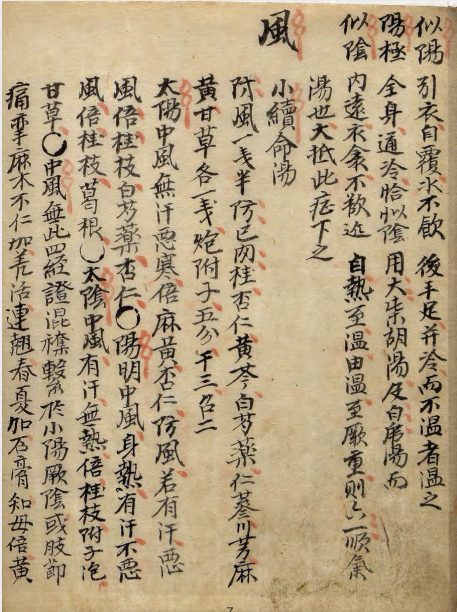 似陽 引衣自覆水不飮 後手足并冷而不温者温之
陽極 全身通冷恰似陰 用大柴胡湯及白虎湯而
似陰 內遠衣衾不歡近 自熱至温由温至厥重則六一順氣
湯也大抵此症下之
風
小續命湯
防風一戔半防己肉桂杏仁黃芩白芍藥仁蔘川芎麻
黃甘草各一戔炮附子五分干三召二
太陽中風無汗惡寒倍麻黃杏仁防風若有汗惡
風倍桂枝白芍藥杏仁○陽明中風身熱有汗不惡
風倍桂枝葛根○太陰中風有汗無熱倍桂枝附子泡
甘草○中風無此四經證混襍繫於小陽厥陰或肢節
痛攣麻木不仁加羌活連翹春夏加石膏知母倍黃
7